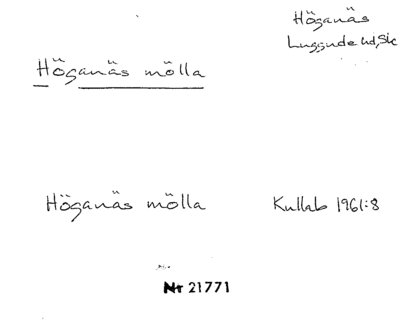 Höganäs
Luggude hd, Sk
Höganäs mölla
Höganäs mölla Kullab 1961:8
Nr 21771